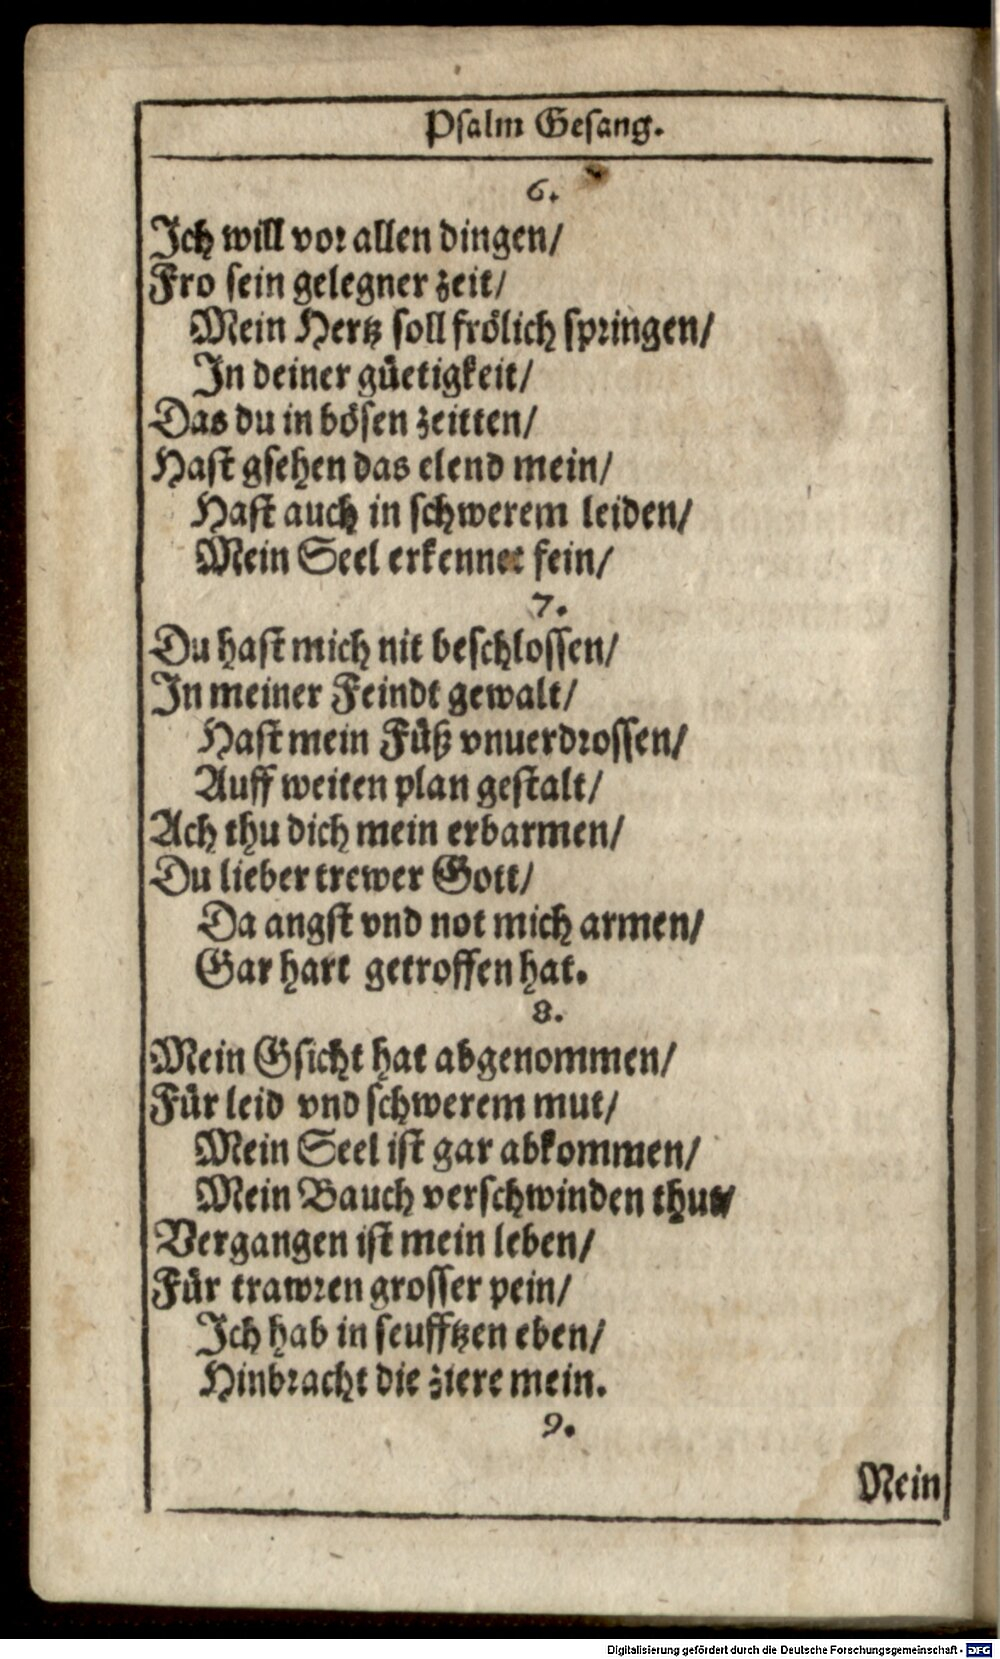 Psalm Gesang.
6.
Ich will vor allen dingen/
Fro sein gelegner zeit/
Mein Hertz soll frölich springen/
In deiner güetigkeit/
Das du in bösen zeitten/
Hast gsehen das elend mein/
Hast auch in schwerem leiden/
Mein Seel erkennet fein/
7.
Du hast mich nit beschlossen/
In meiner Feindt gewalt/
Hast mein Füß vnuerdrossen/
Auff weiten plan gestalt/
Ach thu dich mein erbarmen/
Du lieber trewer Gott/
Da angst vnd not mich armen/
Gar hart getroffen hat.
8.
Mein Gsicht hat abgenommen/
Für leid vnd schwerem mut/
Mein Seel ist gar abkommen/
Mein Bauch verschwinden thut/
Vergangen ist mein leben/
Für trawren grosser pein/
Ich hab in seufftzen eben/
Hinbracht die ziere mein.
9.
Mein
Digitalisierung gefördert durch die Deutsche Forschungsgemeinschaft - DFG